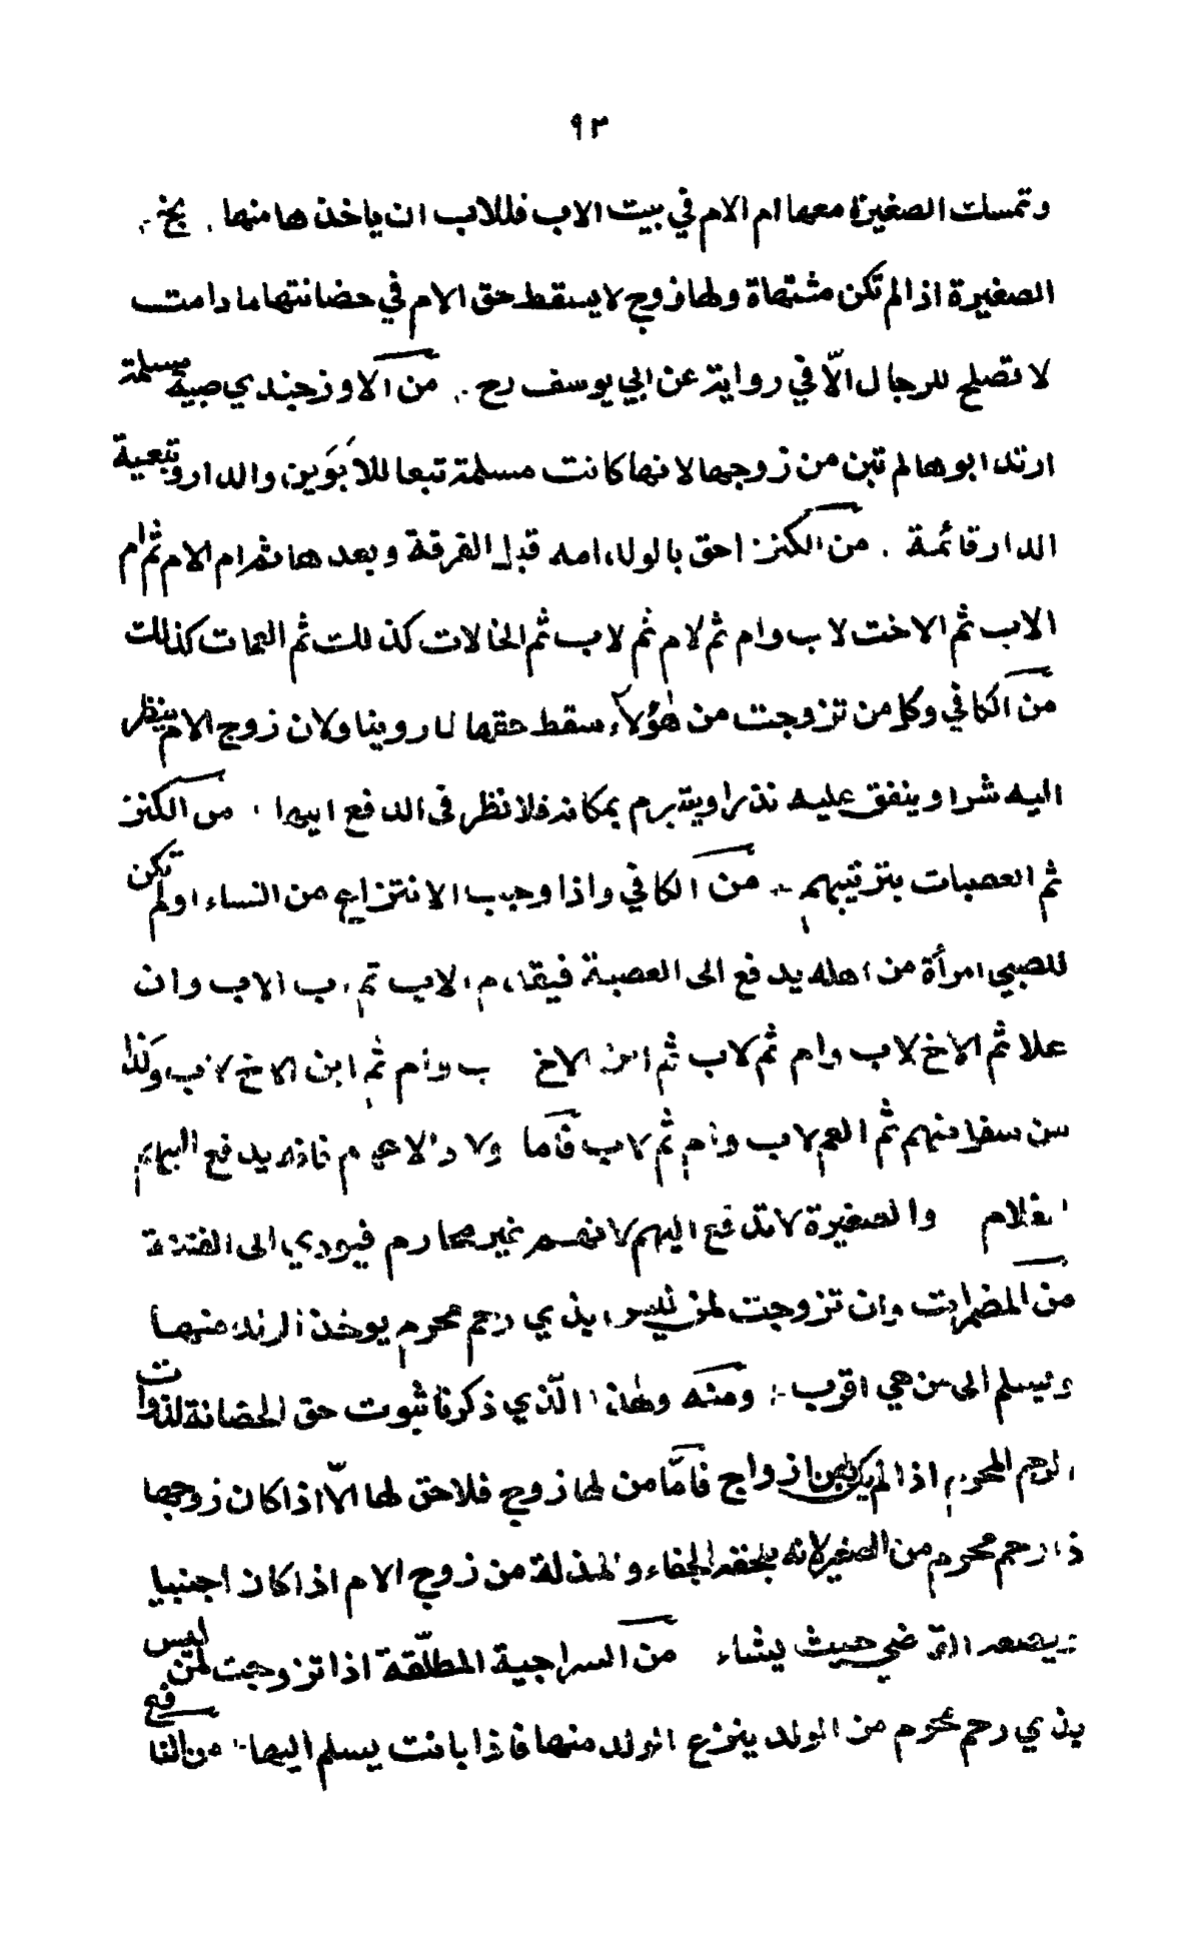 ٩٣
وتمسك الصغيرة معها ام الام في بيت الاب فللاب ان ياخذها منها . بخ ∴
الصغيرة اذا لم تكن مشتهاة ولها زوج لا يسقط حق الام في حضانتها ما دامت
لا تصلح للرجال الّا في رواية عن ابي يوسف رح ∴ من الاوزجندي صبية مسلمة
ارتد ابوها لم تبن من زوجها لانها كانت مسلمة تبعا للأبَوَين والدار وتبعية
الدار قائمة . من الكنز احق بالولد امه قبل الفرقة وبعدها ثم ام الام ثم ام
الاب ثم الاخت لاب وام ثم لام ثم لاب ثم الخالات كذلك ثم العمات كذلك
من الكافي وكل من تزوجت من هؤلاء سقط حقها لما روينا ولان زوج الام ينظر
اليه شزرا وينفق عليه نذرا ويتبرم بمكانه فلا نظر في الدفع اليها . من الكنز
ثم العصبات بترتيبهم ∴ من الكافي واذا وجب الانتزاع من النساء او لم تكن
للصبي امرأة من اهله يدفع الى العصبة فيقدم الاب ثم اب الاب وان
علا ثم الاخ لاب وام ثم لاب ثم ابن الاخ ب وام ثم ابن الاخ لاب وكذا
من سفل منهم ثم العم لاب وام ثم لاب فأما ولاد الاعمام فانه يدفع اليهم
الغلام والصغيرة لا تدفع اليهم لانهم غير محارم فيودي الى الفتنة
من المضمرات وان تزوجت لمن ليس بذي رحم محرم يوخذ الولد منها
ويسلم الى من هي اقرب ∴ ومنه وهذا الّذي ذكرنا ثبوت حق الحضانة لذوات
الرحم المحرم اذا لم يكن لهن ازواج فأمّا من لها زوج فلا حق لها الّا اذا كان زوجها
ذا رحم محرم من الصغير لانه يلحقه الجفاء والمذلة من زوج الام اذا كان اجنبيا
القاضي حيث يشاء من السراجية المطلّقة اذا تزوجت لمن ليس
بذي رحم محرم من الولد ينزع الولد منها فاذا بانت يسلم اليها ∴ من النافع